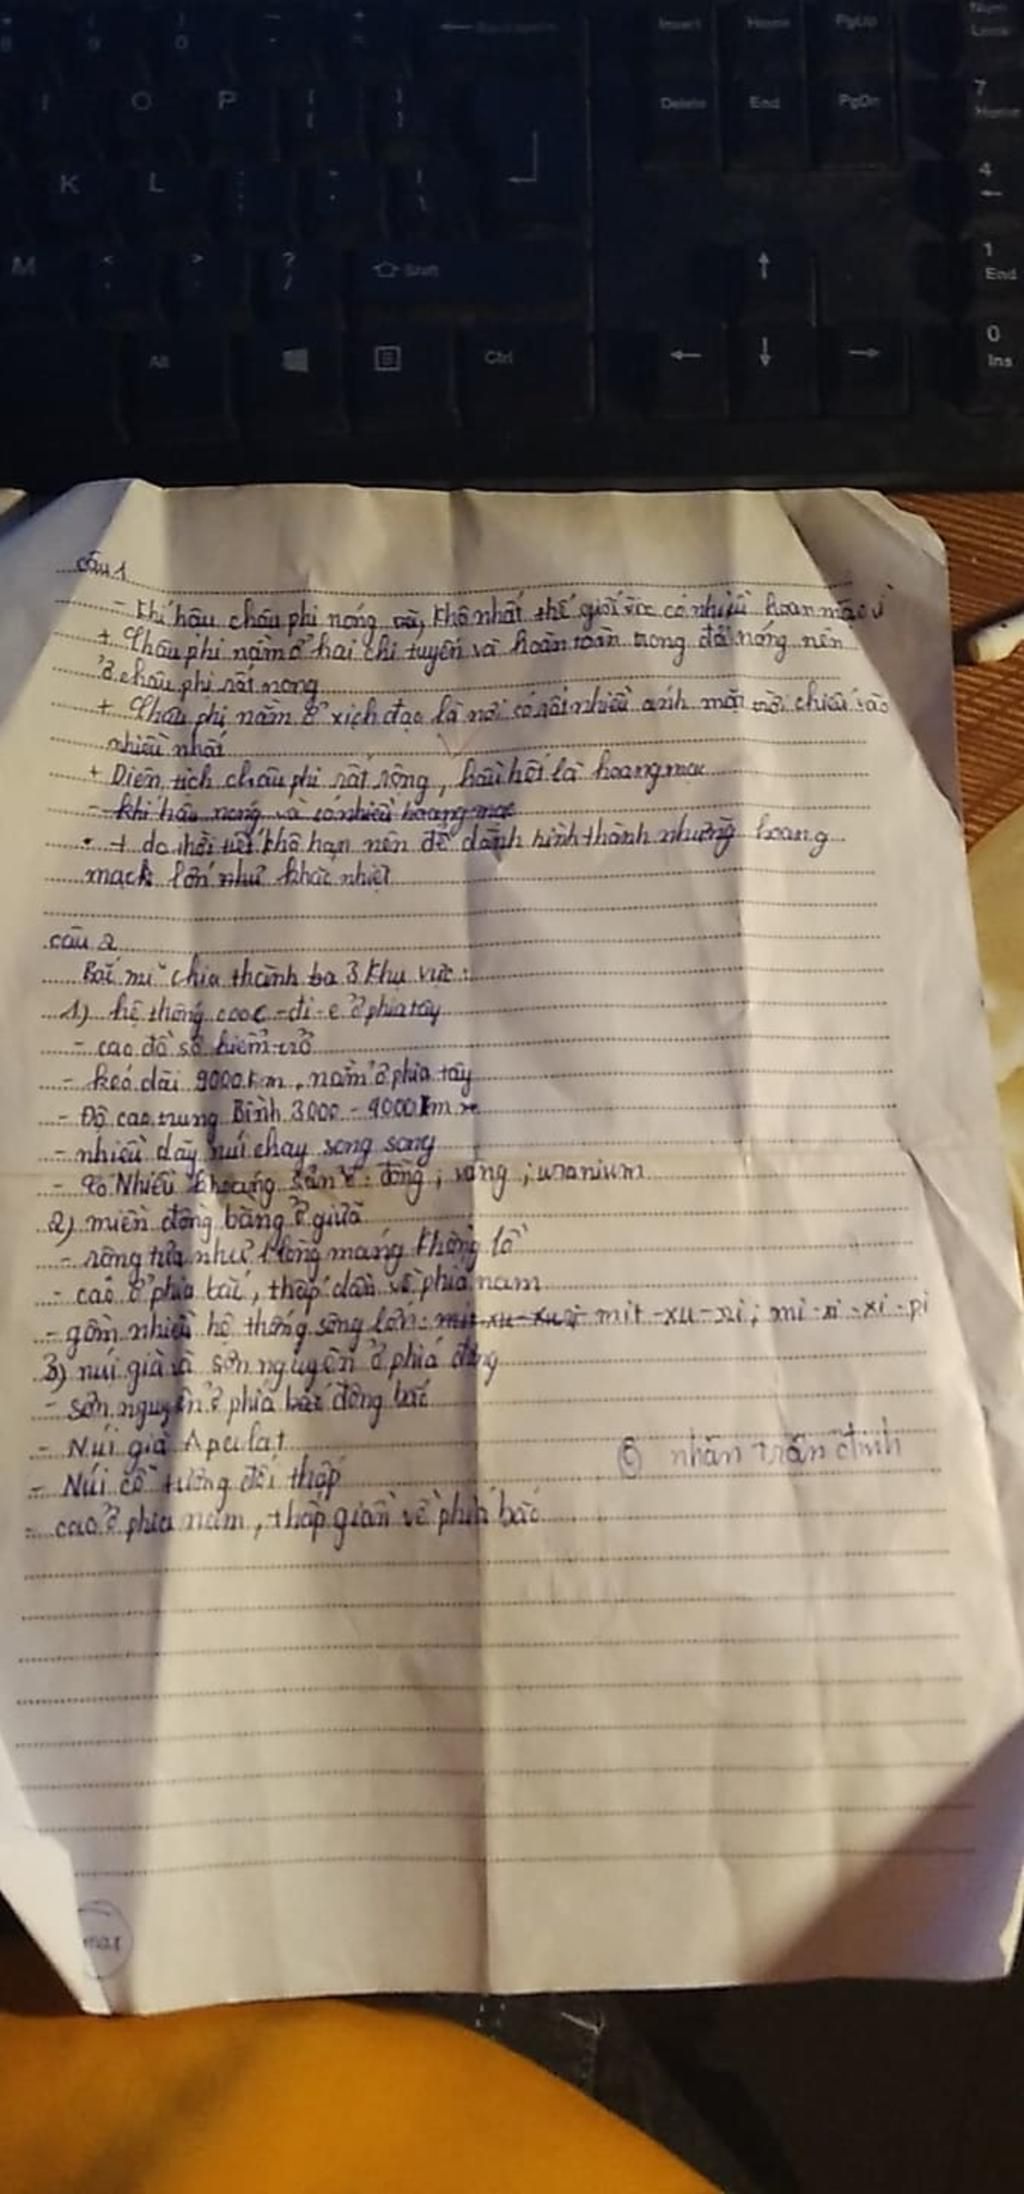 9 0 - + = ← Backspace Insert Home PgUp Num Lock
I O P [ { ] } Delete End PgDn 7 Home
K L : ; " ' | \ 4 ←
M < , > . ? / Shift ↑ 1 End
Alt Ctrl ← ↓ → 0 Ins
câu 1
- Khí hậu châu phi nóng và khô nhất thế giới có nhiều hoan mạc vì
+ Châu phi nằm ở hai chi tuyến và hoàn toàn trong đới nóng nên
ở châu phi rất nong
+ Châu phi nằm ở xích đạo là nơi có rất nhiều ánh mặt trời chiếu vào
nhiều nhất
+ Diên tích châu phi rất rông, hầu hết là hoang mac
- khí hậu nong và có nhiều hoang mac
+ do thời tiết khô hạn nên dễ dành hình thành những hoang
mack lớn như khắc nhiệt
câu 2
Bắc mĩ chia thành ba 3 khu vực:
1) hệ thống cooc-đi-e ở phía tây
- cao đồ sộ hiểm trở
- keó dài 9000 km, nằm ở phía tây
- Độ cao trung Bình 3000 - 4000 km
- nhiều dãy núi chạy song song
- có Nhiều khoáng sản: đồng; vàng; uranium
2) miền đồng bằng ở giữa
- rông tựa như lòng máng khổng lồ
- cao ở phía bắc, thấp dần về phía nam
- gồm nhiều hệ thống sông lớn: mit-xu-ri; mi-xi-xi-pi
3) núi già và sơn nguyên ở phía đông
- sơn nguyên ở phía bắc đông bắc
- Núi già Apalat
- Núi cổ tương đối thấp
- cao ở phía nam, thấp giần về phía bắc
nhân trần đình